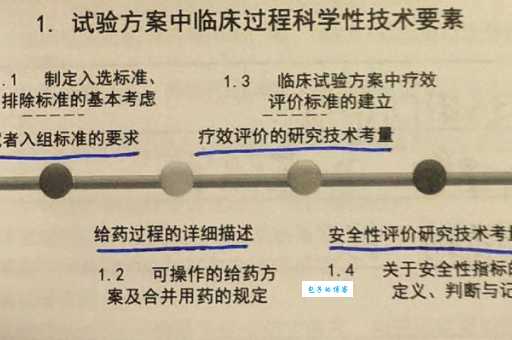 1. 试验方案中临床过程科学性技术要素
.1 制定入选标准、
排除标准的基本考虑
者入组标准的要求
1.3 临床试验方案中疗效
评价标准的建立
疗效评价的研究技术考量
给药过程的详细描述
1.2 可操作的给药方
案及合并用药的规定
安全性评价研究技术考量
1.4 关于安全性指标的
定义、判断与记
包子的博客